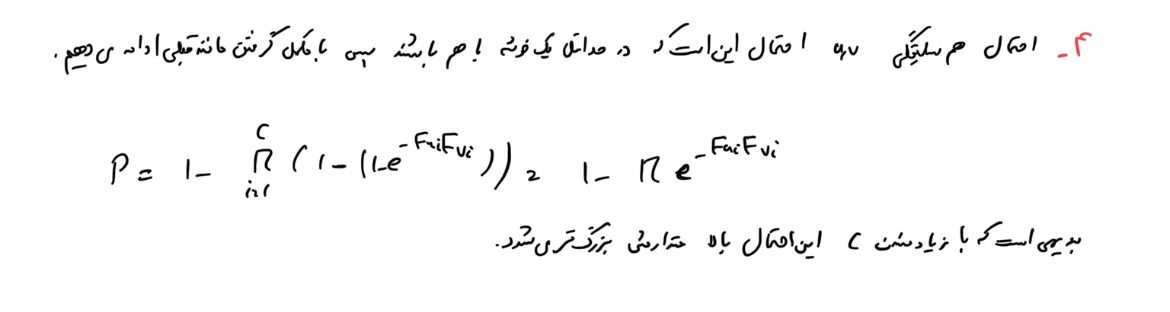 ۴- احتمال همسایگی u,v احتمال این است که در حداقل یک خوشه با هم باشند پس با مکمل گرفتن مانند قبلی ادامه می دهیم.
P = 1 - ∏_{i=1}^{C} (1 - (1 - e^{-F_{ui}F_{vi}})) = 1 - ∏ e^{-F_{ui}F_{vi}}
بدیهی است که با زیاد شدن C این احتمال بالا مقدارش بزرگ تر می شود.